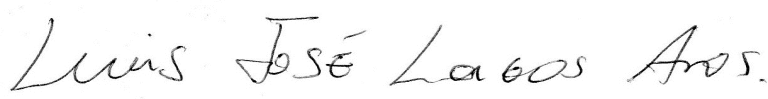 Luis José Lagos Aros.